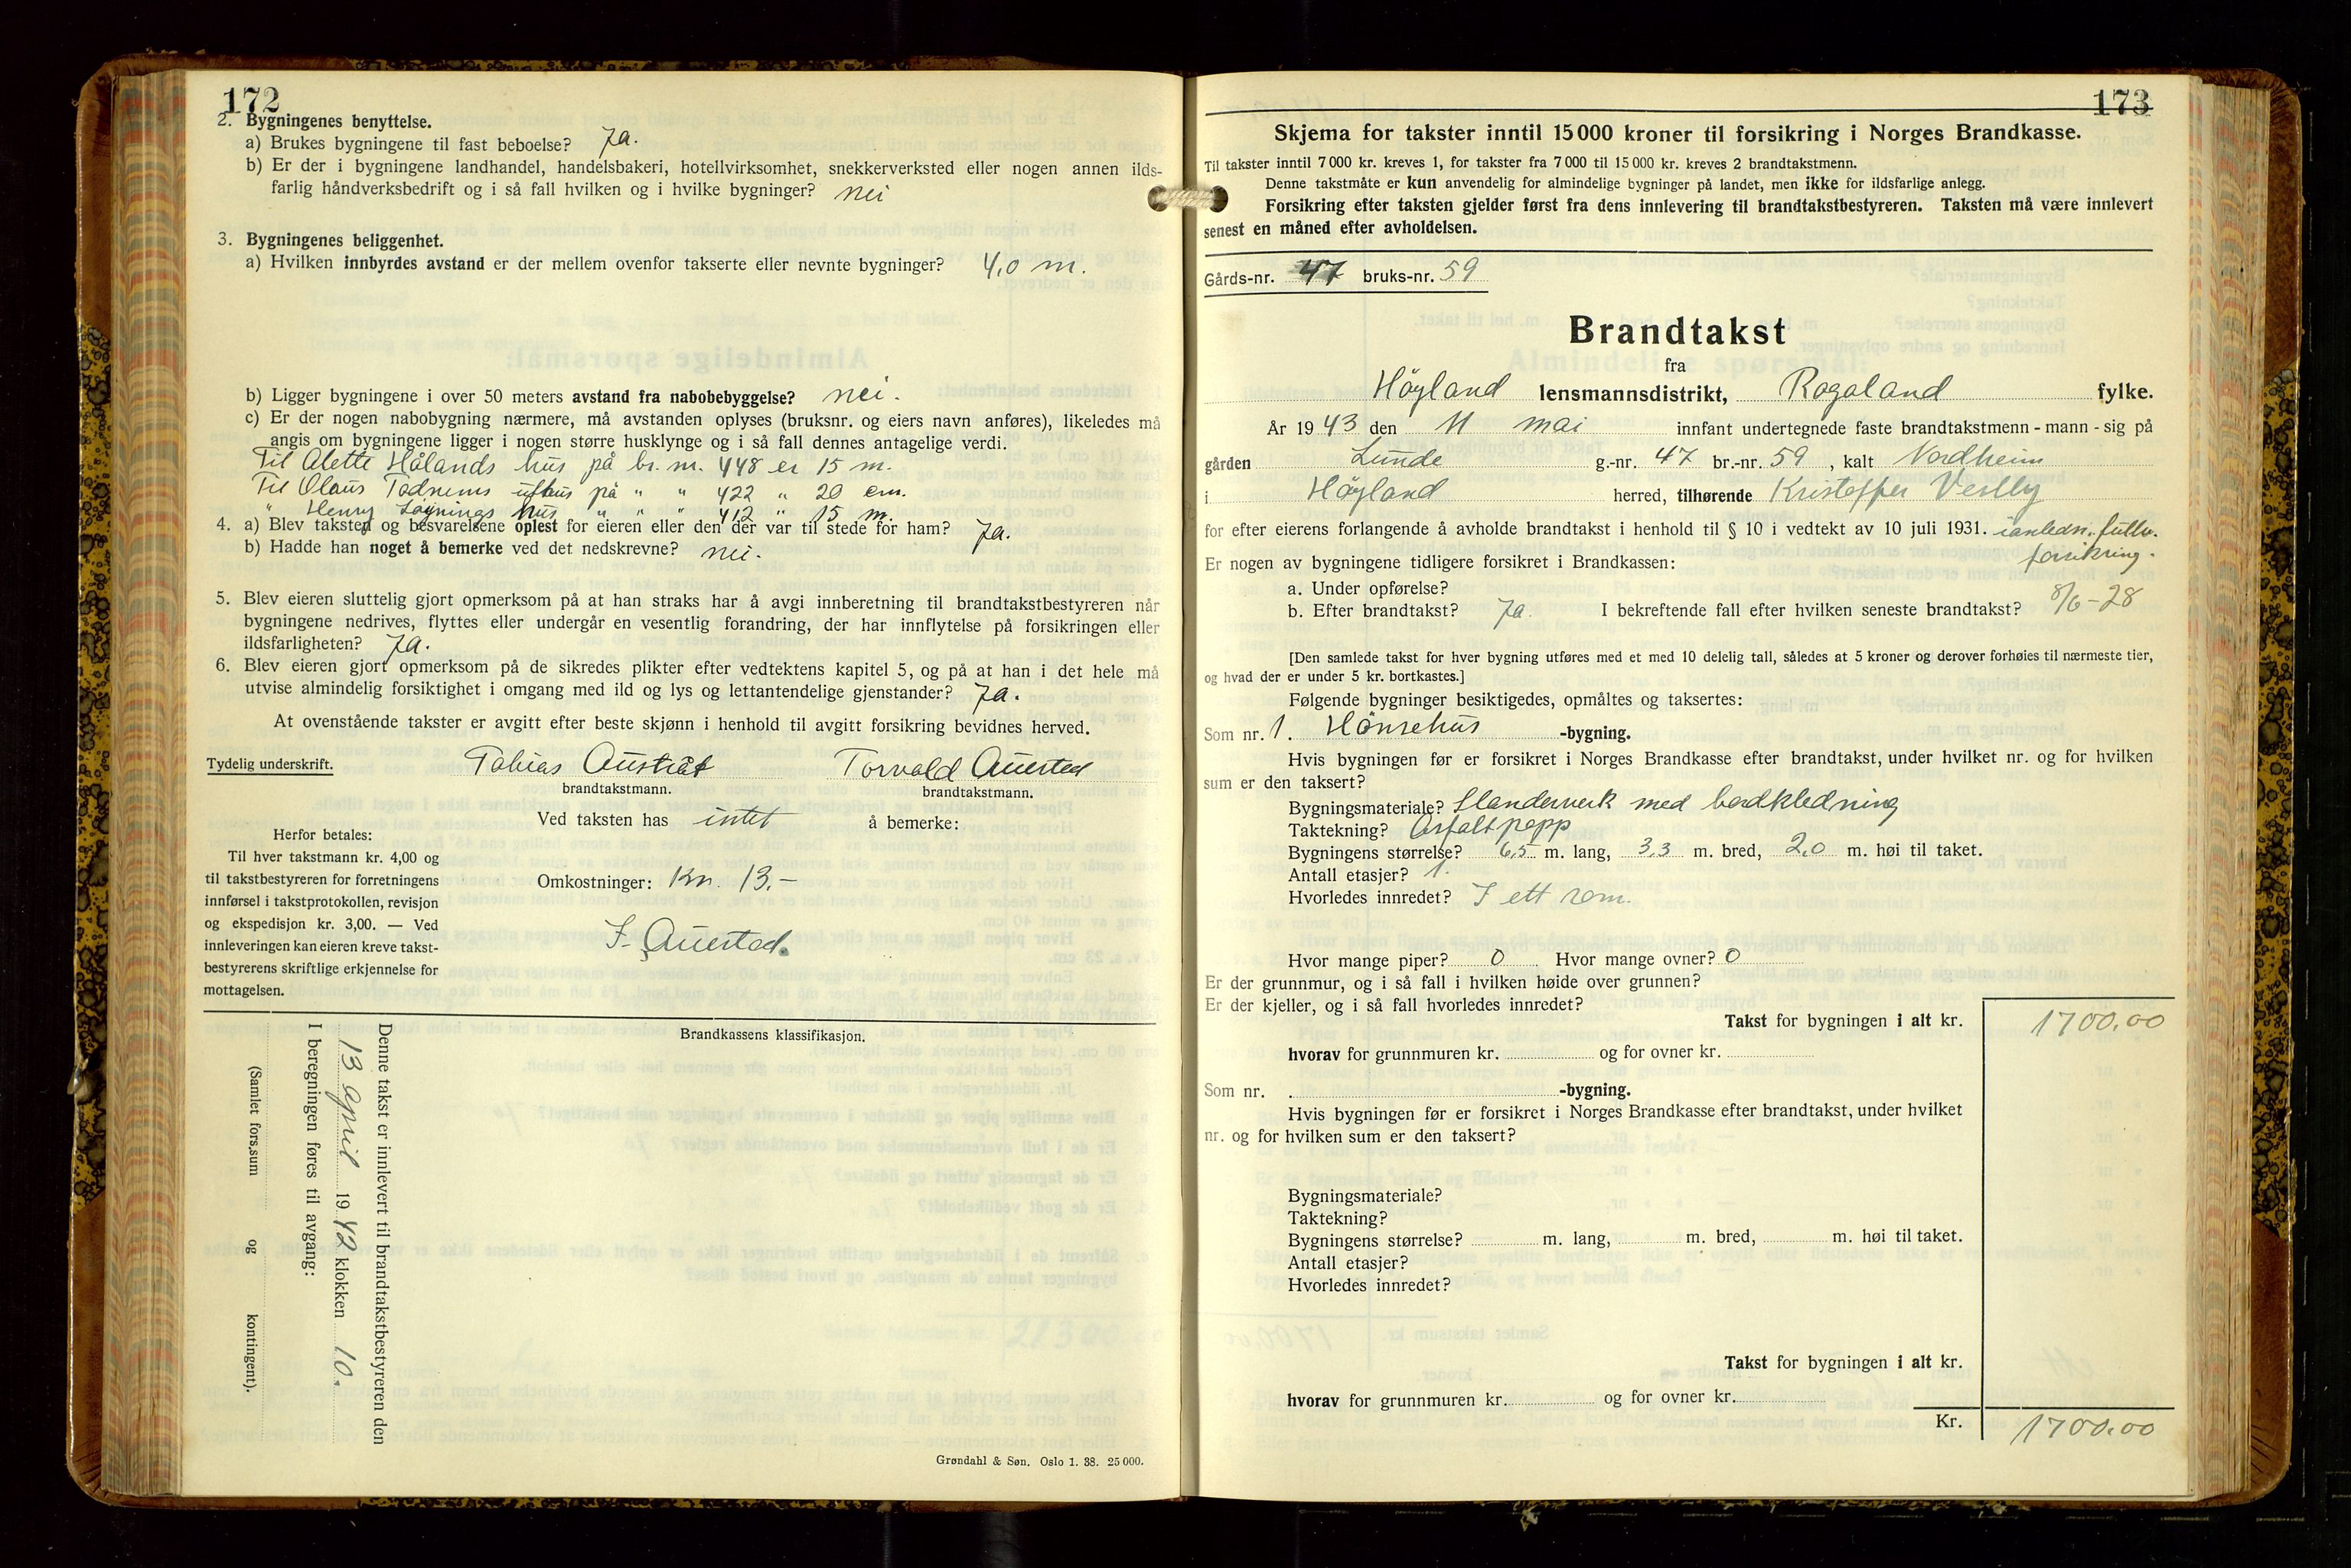 172
2. Bygningenes benyttelse.
a) Brukes bygningene til fast beboelse? Ja.
b) Er der i bygningene landhandel, handelsbakeri, hotellvirksomhet, snekkerverksted eller nogen annen ilds-
farlig håndverksbedrift og i så fall hvilken og i hvilke bygninger? nei
3. Bygningenes beliggenhet.
a) Hvilken innbyrdes avstand er der mellem ovenfor takserte eller nevnte bygninger? 4,0 m.
b) Ligger bygningene i over 50 meters avstand fra nabobebyggelse? nei.
c) Er der nogen nabobygning nærmere, må avstanden oplyses (bruksnr. og eiers navn anføres), likeledes må
angis om bygningene ligger i nogen større husklynge og i så fall dennes antagelige verdi.
Til Alette Hålands hus på br. nr. 448 er 15 m.
Til Olaus Tødnems uthus på " " 422 " 20 cm.
" Henry hus " " 412 " 15 m.
4. a) Blev taksten og besvarelsene oplest for eieren eller den der var til stede for ham? Ja.
b) Hadde han noget å bemerke ved det nedskrevne? nei.
5. Blev eieren sluttelig gjort opmerksom på at han straks har å avgi innberetning til brandtakstbestyreren når
bygningene nedrives, flyttes eller undergår en vesentlig forandring, der har innflytelse på forsikringen eller
ildsfarligheten? Ja.
6. Blev eieren gjort opmerksom på de sikredes plikter efter vedtektens kapitel 5, og på at han i det hele må
utvise almindelig forsiktighet i omgang med ild og lys og lettantendelige gjenstander? Ja.
At ovenstående takster er avgitt efter beste skjønn i henhold til avgitt forsikring bevidnes herved.
Tydelig underskrift. Tobias Austråt Torvald Auestad
brandtakstmann. brandtakstmann.
Ved taksten has intet å bemerke:
Herfor betales:
Til hver takstmann kr. 4,00 og
til takstbestyreren for forretningens
innførsel i takstprotokollen, revisjon
og ekspedisjon kr. 3,00. — Ved
innleveringen kan eieren kreve takst-
bestyrerens skriftlige erkjennelse for
mottagelsen.
Omkostninger: Kr. 13.-
T. Auestad.
Brandkassens klassifikasjon.
Denne takst er innlevert til brandtakstbestyreren den
13 april 1942 klokken 10.
I beregningen føres til avgang:
(Samlet fors.sum og kontingent).
Grøndahl & Søn. Oslo 1. 38. 25 000.
173
Skjema for takster inntil 15 000 kroner til forsikring i Norges Brandkasse.
Til takster inntil 7 000 kr. kreves 1, for takster fra 7 000 til 15 000 kr. kreves 2 brandtakstmenn.
Denne takstmåte er kun anvendelig for almindelige bygninger på landet, men ikke for ildsfarlige anlegg.
Forsikring efter taksten gjelder først fra dens innlevering til brandtakstbestyreren. Taksten må være innlevert
senest en måned efter avholdelsen.
Gårds-nr. 47 bruks-nr. 59
Brandtakst
fra
Höyland lensmannsdistrikt, Rogaland fylke.
År 1943 den 11 mai innfant undertegnede faste brandtakstmenn - mann - sig på
gården Lunde g.-nr. 47 br.-nr. 59, kalt Nordheim
i Höyland herred, tilhørende Kristoffer Vestby
for efter eierens forlangende å avholde brandtakst i henhold til § 10 i vedtekt av 10 juli 1931. fullv.
forsikring.
Er nogen av bygningene tidligere forsikret i Brandkassen:
a. Under opførelse?
b. Efter brandtakst? Ja. I bekreftende fall efter hvilken seneste brandtakst? 8/6-28
[Den samlede takst for hver bygning utføres med et med 10 delelig tall, således at 5 kroner og derover forhøies til nærmeste tier,
og hvad der er under 5 kr. bortkastes.]
Følgende bygninger besiktigedes, opmåltes og taksertes:
Som nr. 1. Hönsehus -bygning.
Hvis bygningen før er forsikret i Norges Brandkasse efter brandtakst, under hvilket nr. og for hvilken
sum er den taksert?
Bygningsmateriale? Standerverk med bordkledning
Taktekning? Asfaltpapp
Bygningens størrelse? 6,5 m. lang, 3,3 m. bred, 2,0 m. høi til taket.
Antall etasjer? 1.
Hvorledes innredet? I ett rom.
Hvor mange piper? 0 Hvor mange ovner? 0
Er der grunnmur, og i så fall i hvilken høide over grunnen?
Er der kjeller, og i så fall hvorledes innredet?
Takst for bygningen i alt kr. 1700,00
hvorav for grunnmuren kr. og for ovner kr.
Som nr. . -bygning.
Hvis bygningen før er forsikret i Norges Brandkasse efter brandtakst, under hvilket
nr. og for hvilken sum er den taksert?
Bygningsmateriale?
Taktekning?
Bygningens størrelse? m. lang, m. bred, m. høi til taket.
Antall etasjer?
Hvorledes innredet?
Takst for bygningen i alt kr.
hvorav for grunnmuren kr. og for ovner kr.
Kr. 1700,00